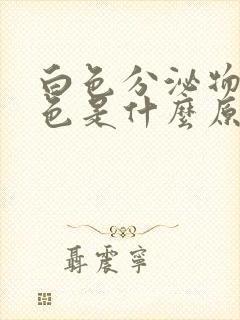 白色分泌物
色是什麼原
聶震寧